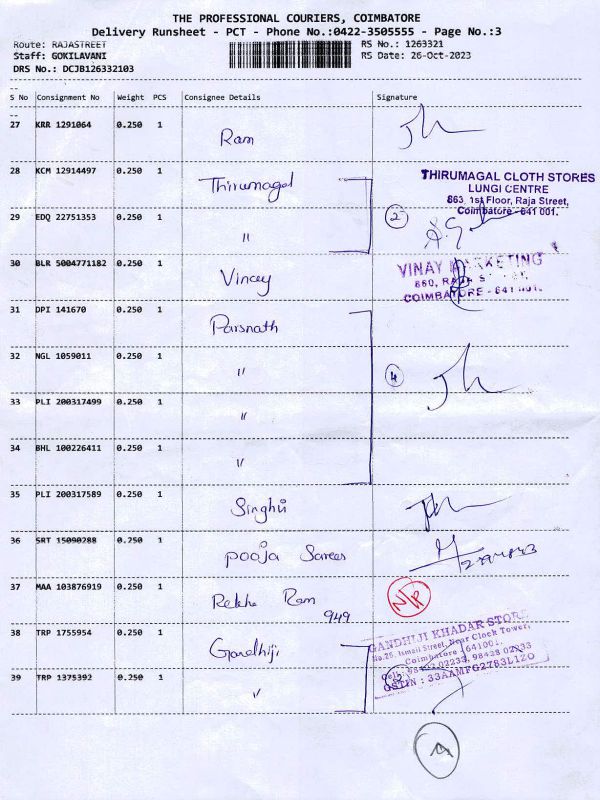 THE PROFESSIONAL COURIERS, COIMBATORE
Delivery Runsheet - PCT - Phone No.:0422-3505555 - Page No.:3
Route: RAJASTREET RS No.: 1263321
Staff: GOKILAVANI RS Date: 26-Oct-2023
DRS No.: DCJB126332103
S No Consignment No Weight PCS Consignee Details Signature
27 KRR 1291064 0.250 1 Ram
28 KCM 12914497 0.250 1 Thirumagal
THIRUMAGAL CLOTH STORES
LUNGI CENTRE
863, 1st Floor, Raja Street,
Coimbatore - 641 001.
29 EDQ 22751353 0.250 1 " 2
30 BLR 5004771182 0.250 1 Vinay
VINAY MARKETING
860, RAJA S
COIMBATORE - 641 001.
31 DPI 141670 0.250 1 Parsnath
32 NGL 1059011 0.250 1 " 4
33 PLI 200317499 0.250 1 "
34 BHL 100226411 0.250 1 "
35 PLI 200317589 0.250 1 Singhvi
36 SRT 15090288 0.250 1 pooja Sarees
37 MAA 103876919 0.250 1 Rekha Ram 949 N/P
38 TRP 1755954 0.250 1 Gandhiji
GANDHIJI KHADAR STORE
No.26, Ismail Street, Near Clock Tower,
Coimbatore - 641001.
GSTIN : 33AAMFG2783L1ZO
39 TRP 1375392 0.250 1 " 2